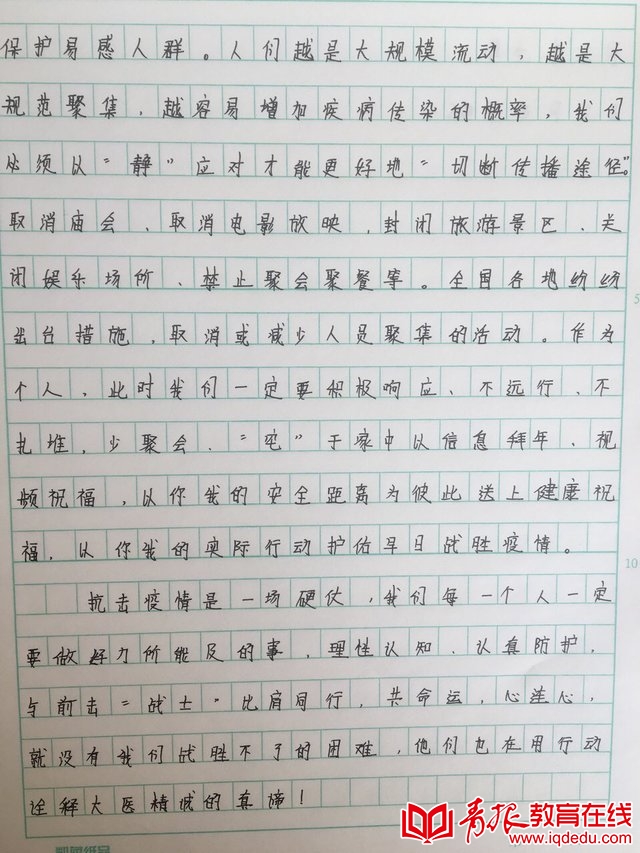 保护易感人群。人们越是大规模流动，越是大
规范聚集，越容易增加疾病传染的概率，我们
必须以“静”应对才能更好地“切断传播途径”。
取消庙会、取消电影放映，封闭旅游景区、关
闭娱乐场所、禁止聚会聚餐等。全国各地纷纷
出台措施，取消或减少人员聚集的活动。作为
个人，此时我们一定要积极响应、不远行、不
扎堆，少聚会、“宅”于家中以信息拜年、视
频祝福，以你我的安全距离为彼此送上健康祝
福，以你我的实际行动护佑早日战胜疫情。
5
10
抗击疫情是一场硬仗，我们每一个人一定
要做好力所能及的事，理性认知、认真防护，
与前击“战士”比肩同行，共命运，心连心，
就没有我们战胜不了的困难，他们也在用行动
诠释大医精诚的真谛！
青报教育在线
www.iqdedu.com